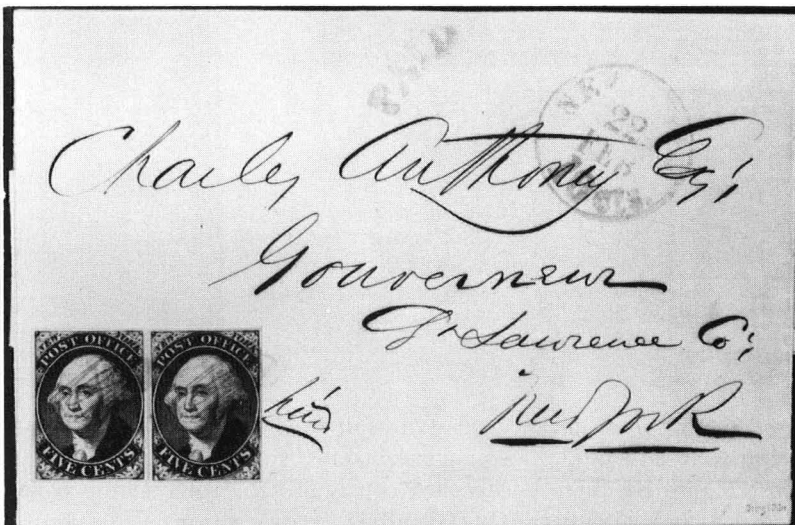 PAID
NEW
22
FEB
Charles Anthony Esq;
Gouverneur
St Lawrence Co;
New York
POST OFFICE
FIVE CENTS
POST OFFICE
FIVE CENTS